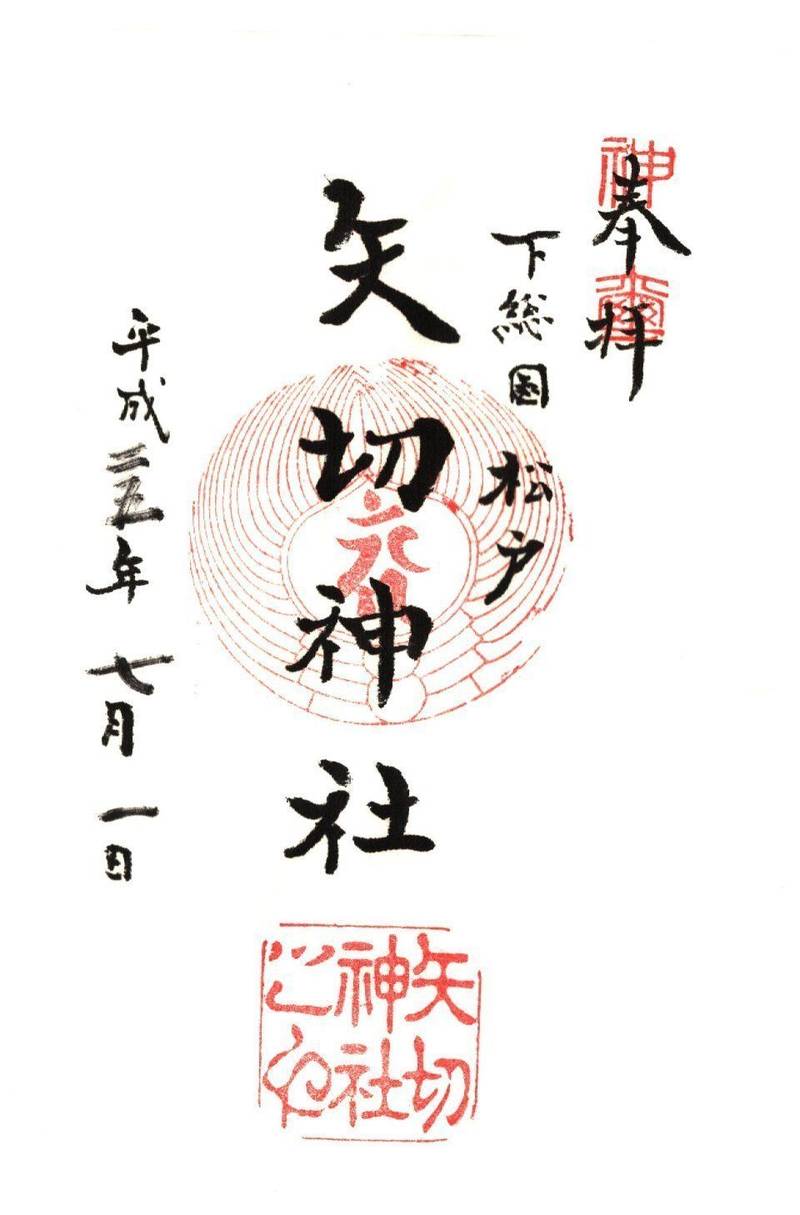 奉拝
下総国 松戸
矢切神社
平成二五年 七月 一日
矢切
神社
之印